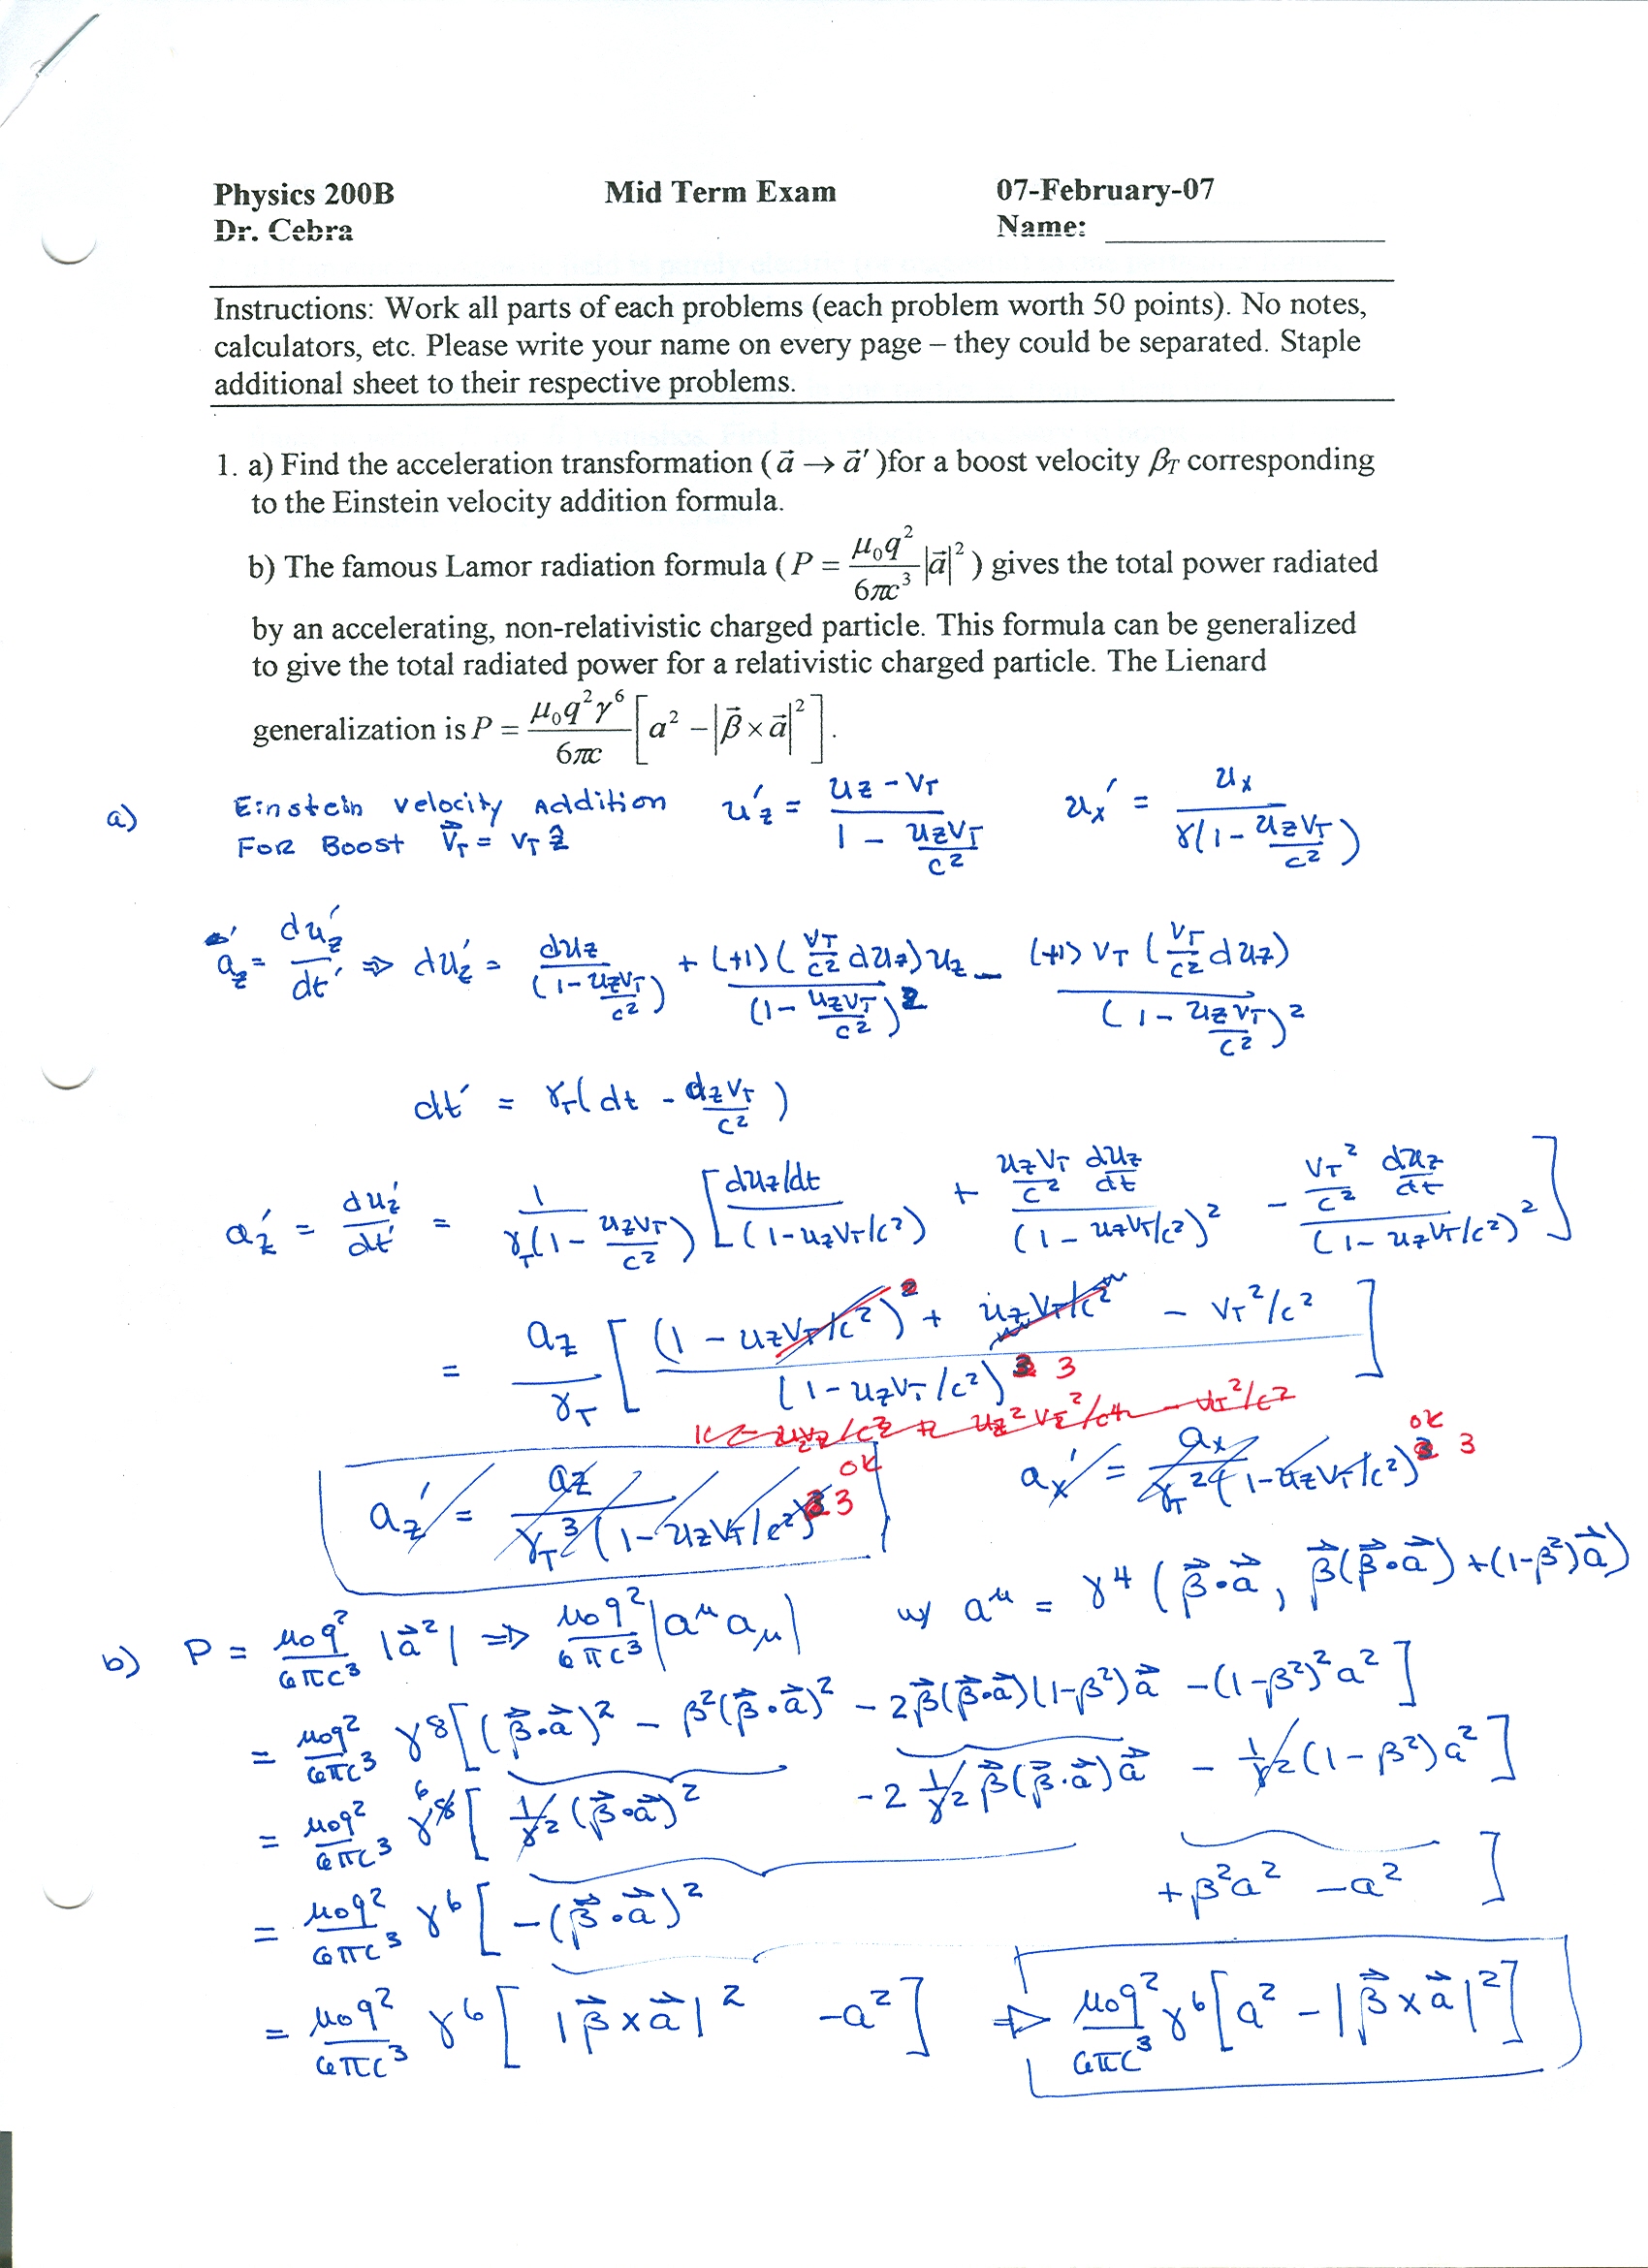 Physics 200B Mid Term Exam 07-February-07
Dr. Cebra Name: ____________
Instructions: Work all parts of each problems (each problem worth 50 points). No notes,
calculators, etc. Please write your name on every page – they could be separated. Staple
additional sheet to their respective problems.
1. a) Find the acceleration transformation (a⃗ → a⃗′ )for a boost velocity β_T corresponding
to the Einstein velocity addition formula.
b) The famous Lamor radiation formula ( P = μ₀q²/6πc³ |a⃗|² ) gives the total power radiated
by an accelerating, non-relativistic charged particle. This formula can be generalized
to give the total radiated power for a relativistic charged particle. The Lienard
generalization is P = μ₀q²γ⁶/6πc [a² − |β⃗ × a⃗|²].
a) Einstein velocity Addition u_z′ = (u_z − v_T)/(1 − u_z v_T/c²) u_x′ = u_x/(γ(1 − u_z v_T/c²))
For Boost V⃗_T = v_T ẑ
a_z′ = du_z′/dt′ ⇒ du_z′ = du_z/(1 − u_z v_T/c²) + (+1)(v_T/c² du_z)u_z/(1 − u_z v_T/c²)² − (+1) v_T (v_T/c² du_z)/(1 − u_z v_T/c²)²
dt′ = γ_T(dt − dz v_T/c²)
a_z′ = du_z′/dt′ = 1/(γ_T(1 − u_z v_T/c²)) [ (du_z/dt)/(1 − u_z v_T/c²) + (u_z v_T/c² du_z/dt)/(1 − u_z v_T/c²)² − (v_T²/c² du_z/dt)/(1 − u_z v_T/c²)² ]
= a_z/γ_T [ ((1 − u_z v_T/c²) + u_z v_T/c² − v_T²/c²)/(1 − u_z v_T/c²)³ ]
a_z′ = a_z/(γ_T³(1 − u_z v_T/c²)³) ok a_x′ = a_x/(γ_T²(1 − u_z v_T/c²)³) ok
b) P = μ₀q²/6πc³ |a⃗²| ⇒ μ₀q²/6πc³ |a^μ a_μ| w/ a^μ = γ⁴ (β⃗·a⃗, β⃗(β⃗·a⃗) + (1−β²)a⃗)
= μ₀q²/6πc³ γ⁸[(β⃗·a⃗)² − β²(β⃗·a⃗)² − 2β⃗(β⃗·a⃗)(1−β²)a⃗ − (1−β²)²a²]
= μ₀q²/6πc³ γ⁶[1/γ²(β⃗·a⃗)² − 2 1/γ² β⃗(β⃗·a⃗)a⃗ − 1/γ²(1−β²)a²]
= μ₀q²/6πc³ γ⁶[−(β⃗·a⃗)² + β²a² − a²]
= μ₀q²/6πc³ γ⁶[|β⃗ × a⃗|² − a²] ⇒ μ₀q²/6πc³ γ⁶[a² − |β⃗ × a⃗|²]